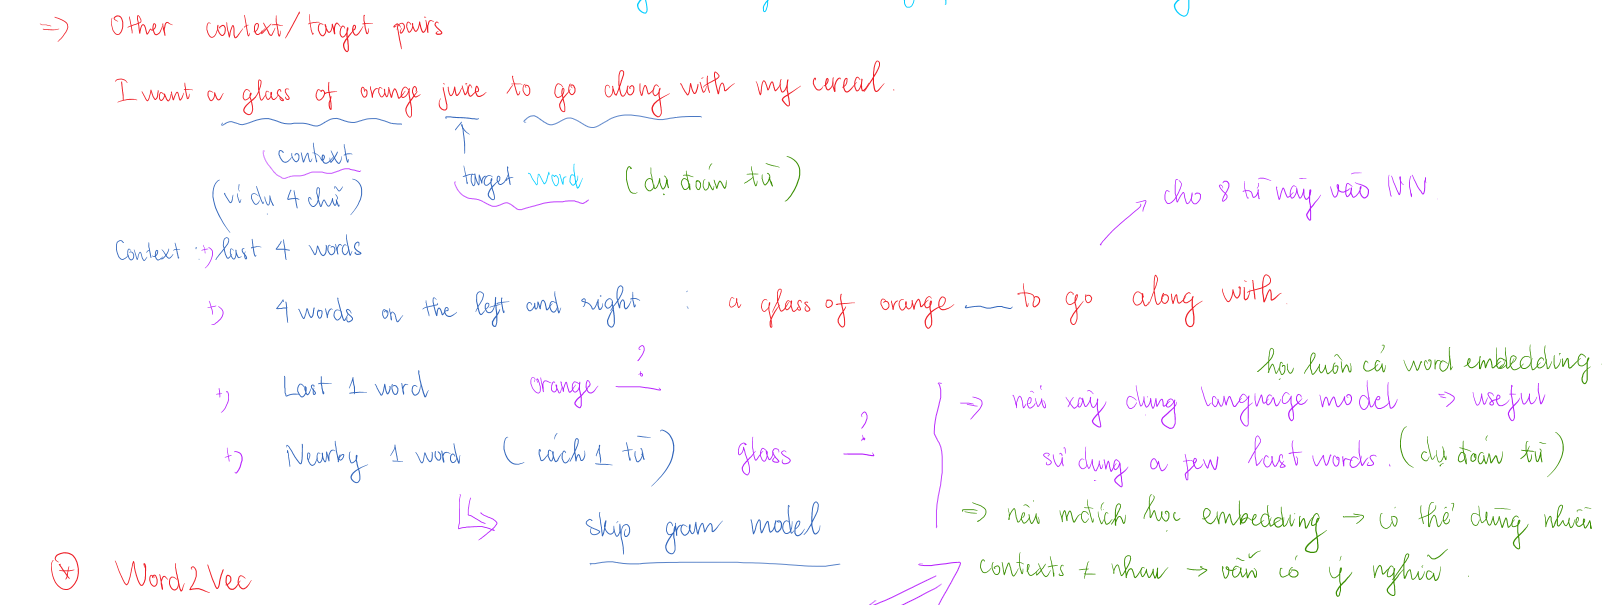 => Other context/target pairs
I want a glass of orange juice to go along with my cereal.
context
target word (dự đoán từ)
(ví dụ 4 chữ)
cho 8 từ này vào NN
Context : +) last 4 words
+) 4 words on the left and right : a glass of orange ___ to go along with
+) Last 1 word orange ___?
+) Nearby 1 word (cách 1 từ) glass ___?
skip gram model
học luôn cả word embedding
=> nếu xây dựng language model => useful
sử dụng a few last words. (dự đoán từ)
=> nếu mđích học embedding → có thể dùng nhiều
contexts ≠ nhau → vẫn có ý nghĩa.
* Word2Vec